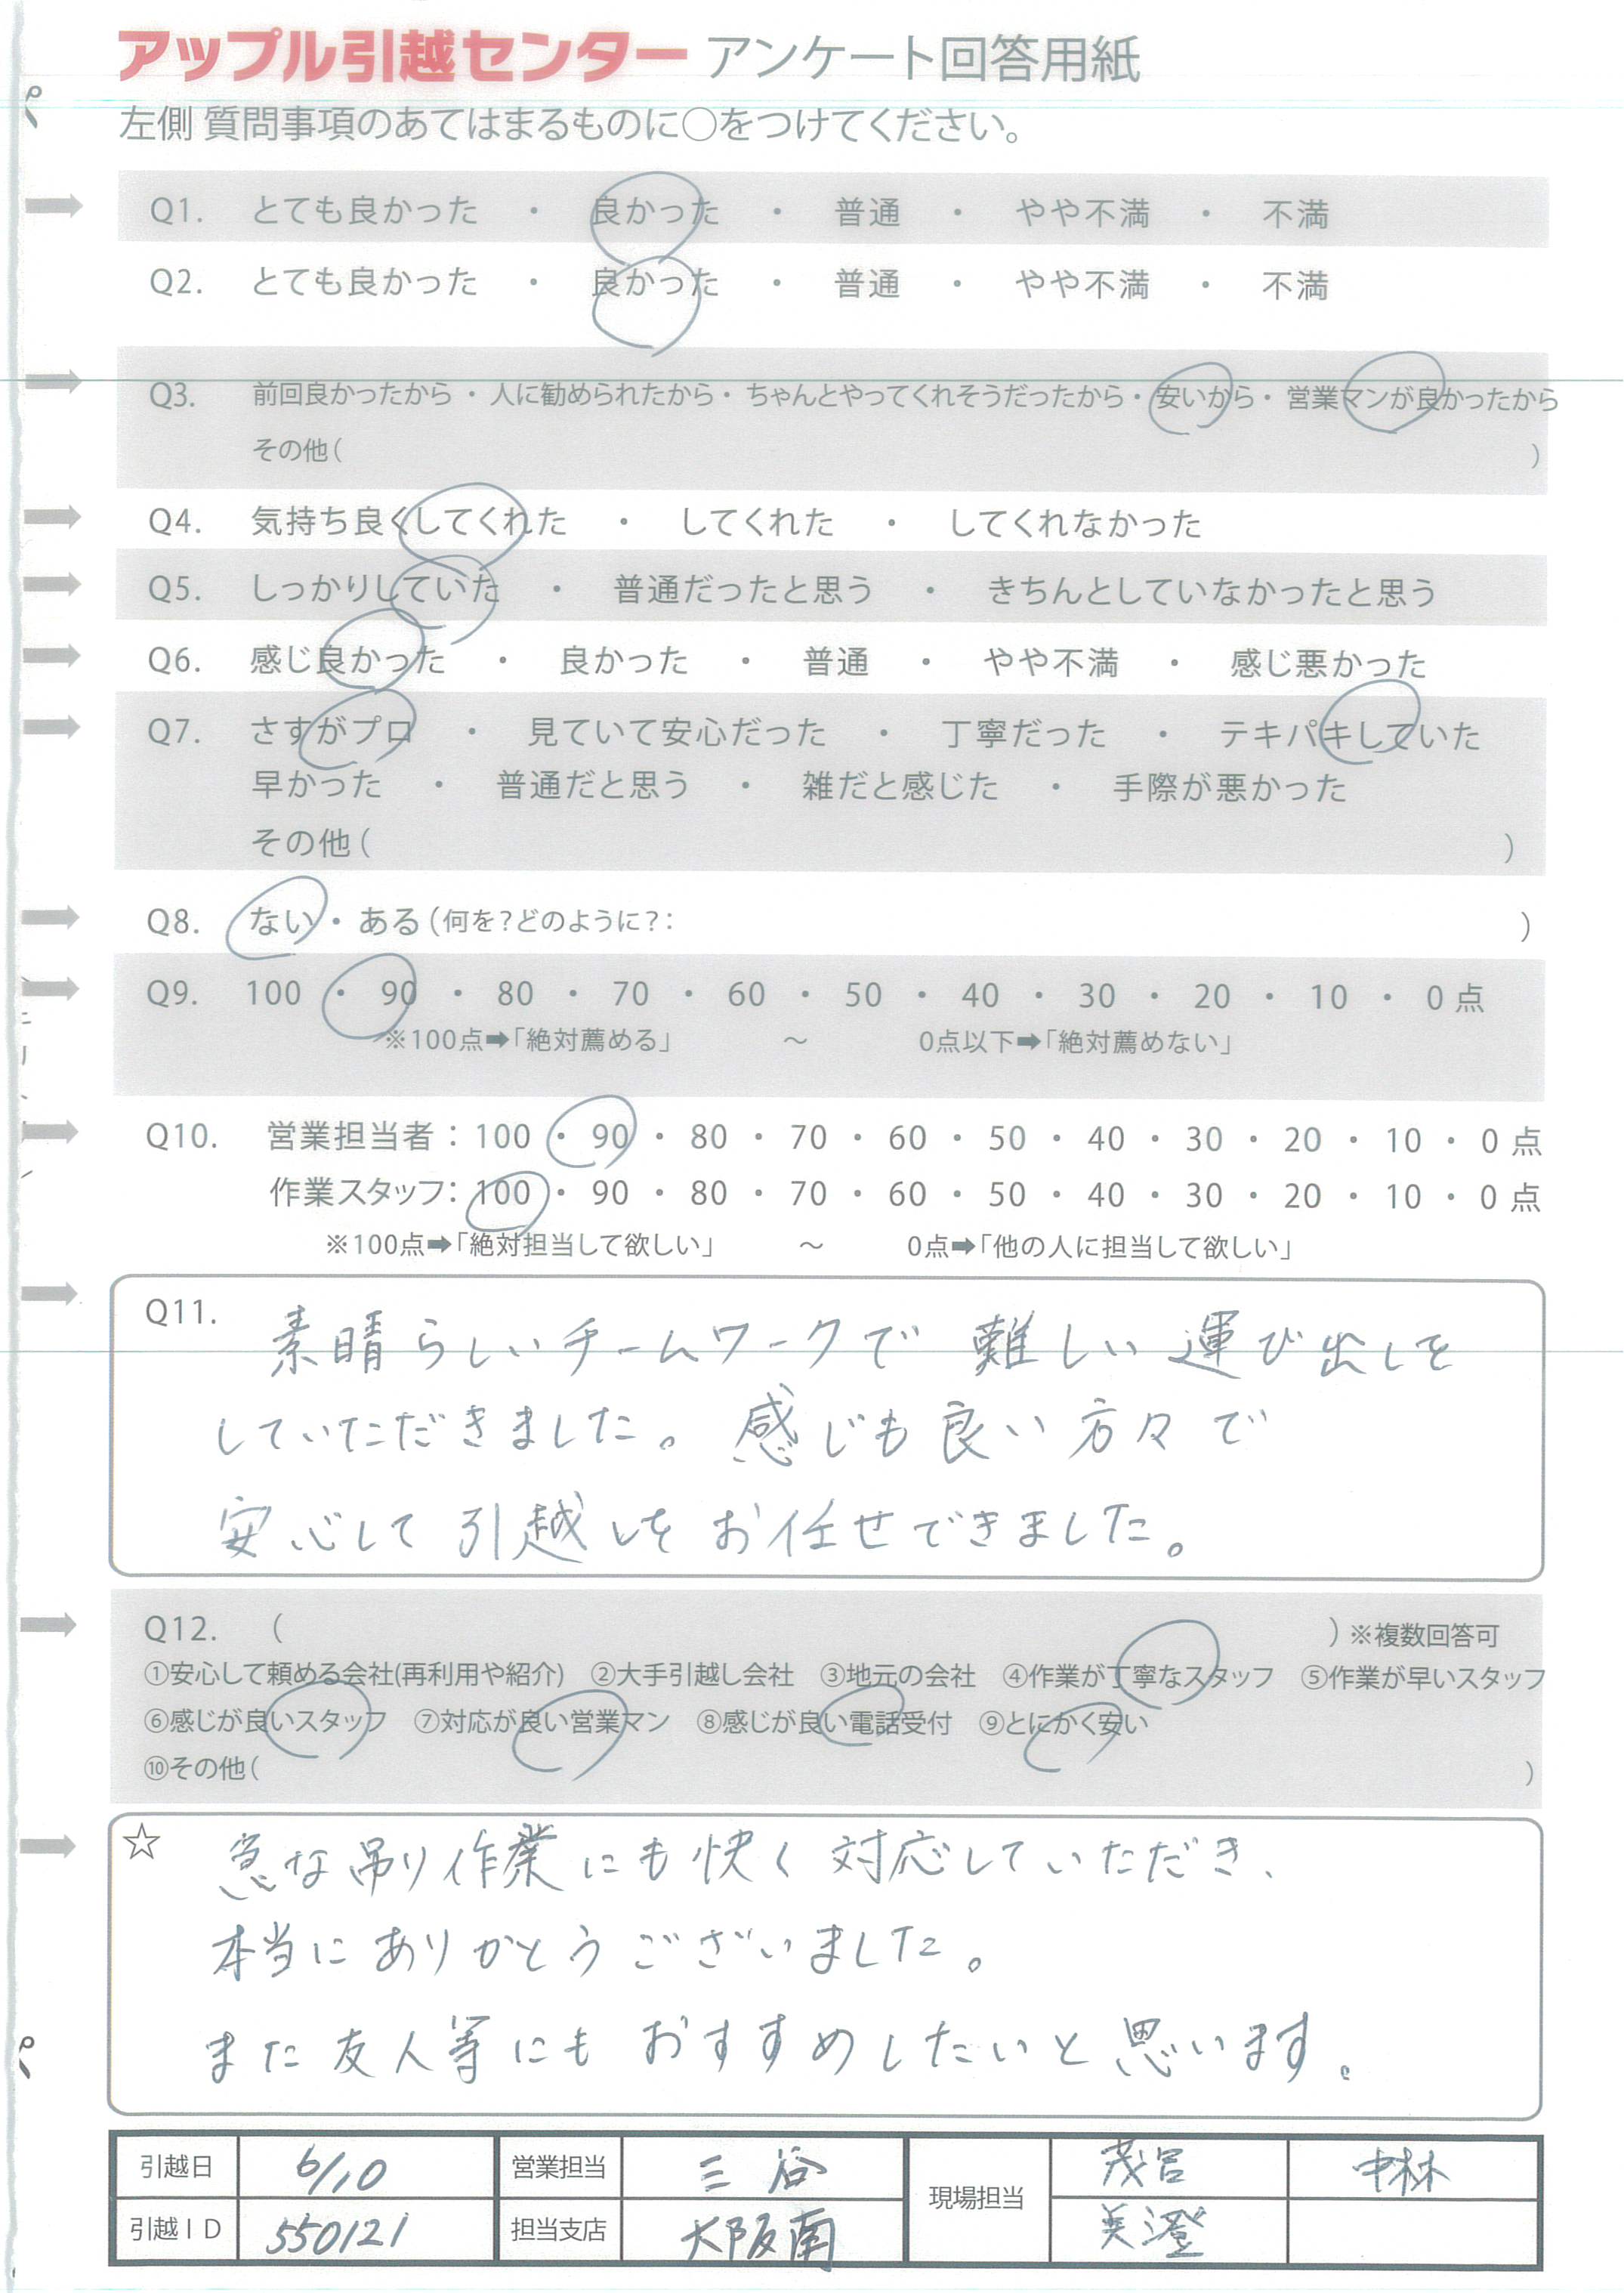 アップル引越センター アンケート回答用紙
左側 質問事項のあてはまるものに○をつけてください。
Q1. とても良かった ・ 良かった ・ 普通 ・ やや不満 ・ 不満
Q2. とても良かった ・ 良かった ・ 普通 ・ やや不満 ・ 不満
Q3. 前回良かったから ・ 人に勧められたから ・ ちゃんとやってくれそうだったから ・ 安いから ・ 営業マンが良かったから
その他( )
Q4. 気持ち良くしてくれた ・ してくれた ・ してくれなかった
Q5. しっかりしていた ・ 普通だったと思う ・ きちんとしていなかったと思う
Q6. 感じ良かった ・ 良かった ・ 普通 ・ やや不満 ・ 感じ悪かった
Q7. さすがプロ ・ 見ていて安心だった ・ 丁寧だった ・ テキパキしていた
早かった ・ 普通だと思う ・ 雑だと感じた ・ 手際が悪かった
その他( )
Q8. ない ・ ある (何を?どのように?: )
Q9. 100 ・ 90 ・ 80 ・ 70 ・ 60 ・ 50 ・ 40 ・ 30 ・ 20 ・ 10 ・ 0 点
※100点➡「絶対薦める」 ～ 0点以下➡「絶対薦めない」
Q10. 営業担当者：100 ・ 90 ・ 80 ・ 70 ・ 60 ・ 50 ・ 40 ・ 30 ・ 20 ・ 10 ・ 0 点
作業スタッフ：100 ・ 90 ・ 80 ・ 70 ・ 60 ・ 50 ・ 40 ・ 30 ・ 20 ・ 10 ・ 0 点
※100点➡「絶対担当して欲しい」 ～ 0点➡「他の人に担当して欲しい」
Q11. 素晴らしいチームワークで 難しい運び出しを
していただきました。感じも良い方々で
安心して引越しをお任せできました。
Q12. ( ) ※複数回答可
①安心して頼める会社(再利用や紹介) ②大手引越し会社 ③地元の会社 ④作業が丁寧なスタッフ ⑤作業が早いスタッフ
⑥感じが良いスタッフ ⑦対応が良い営業マン ⑧感じが良い電話受付 ⑨とにかく安い
⑩その他( )
☆ 急な吊り作業にも快く対応していただき、
本当にありがとうございました。
また友人等にもおすすめしたいと思います。
引越日 6/10 営業担当 三谷 現場担当 茂宮 中林
引越ID 550121 担当支店 大阪南 美澄